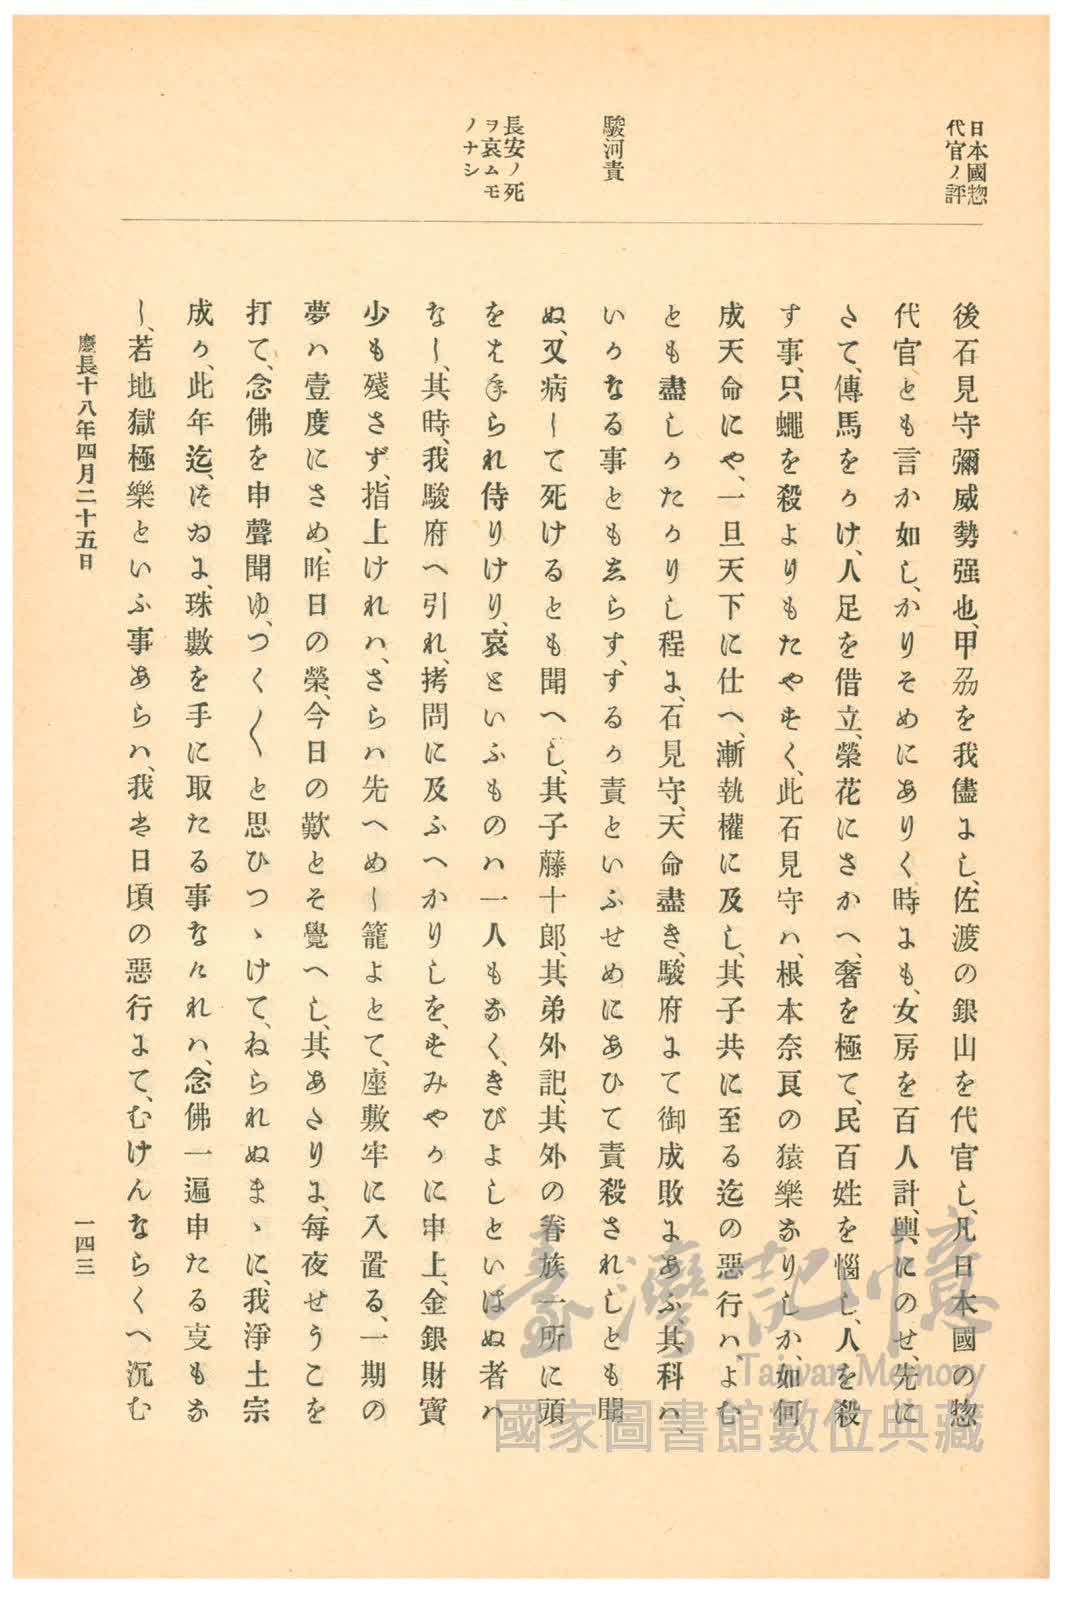 日本國惣
代官ノ評
駿河責
長安ノ死
ヲ哀ムモ
ノナシ
後石見守彌威勢强也、甲刕を我儘よし、佐渡の銀山を代官し、凡日本國の惣
代官とも言か如し、かりそめにありく時よも、女房を百人計、輿にのせ、先に
さて、傳馬をかけ、人足を借立、榮花にさかへ、奢を極て、民百姓を惱し、人を殺
す事、只蠅を殺よりもたやすく、此石見守ハ、根本奈良の猿樂なりしか、如何
成天命にや、一旦天下に仕へ、漸執權に及し、其子共に至る迄の惡行ハ、よむ
とも盡しかたかりし程よ、石見守、天命盡き、駿府よて御成敗よあふ其科ハ、
いかなる事とも志らす、するか責といふせめにあひて責殺されしとも聞
ぬ、又病して死けるとも聞へし、其子藤十郎、其弟外記、其外の眷族一所に頭
をはねられ侍りけり、哀といふものハ一人もなく、きびよしといはぬ者ハ
なし、其時、我駿府へ引れ、拷問に及ふへかりしを、すみやかに申上、金銀財寶
少も殘さず、指上けれハ、さらハ先へめし籠よとて、座敷牢に入置る、一期の
夢ハ壹度にさめ、昨日の榮、今日の歎とそ覺へし、其あさりよ、每夜せうこを
打て、念佛を申聲聞ゆ、つく〱と思ひつゝけて、ねられぬまゝに、我淨土宗
成か、此年迄、つゐよ、珠數を手に取たる事なけれハ、念佛一遍申たる㕝もな
し、若地獄極樂といふ事あらハ、我も日頃の惡行よて、むけんならくへ沉む
慶長十八年四月二十五日
一四三
臺灣記憶
Taiwan Memory
國家圖書館數位典藏